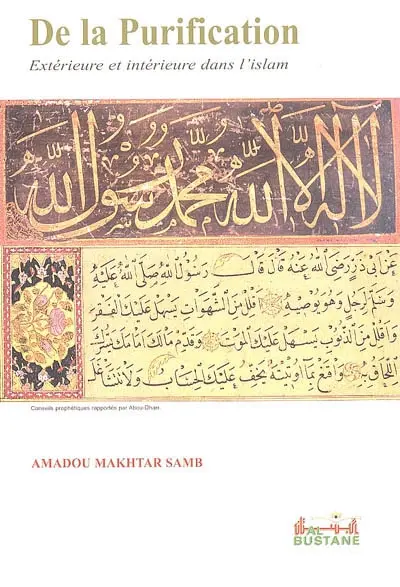 De la Purification
Extérieure et intérieure dans l'islam
لا اله الا الله محمد رسول الله
عَنْ اَبِى ذَرٍّ رَضِىَ اللهُ عَنْهُ قَالَ قَالَ رَسُولُ اللهِ صَلَّى اللهُ عَلَيْهِ
وَسَلَّمَ لِرَجُلٍ وَهُوَ يُوصِيهِ قَلِّلْ مِنَ الشَّهَوَاتِ يَسْهُلْ عَلَيْكَ الْفَقْرُ
وَاَقْلِلْ مِنَ الذُّنُوبِ يَسْهُلْ عَلَيْكَ الْمَوْتُ وَقَدِّمْ مَالَكَ اَمَامَكَ يَسُرَّكَ
اللِّحَاقُ بِهِ وَاقْنَعْ بِمَا اُوتِيتَهُ يَخِفَّ عَلَيْكَ الْحِسَابُ وَلَا تَتَشَاغَلْ
Conseils prophétiques rapportés par Abou-Dharr.
AMADOU MAKHTAR SAMB
AL
BUSTANE